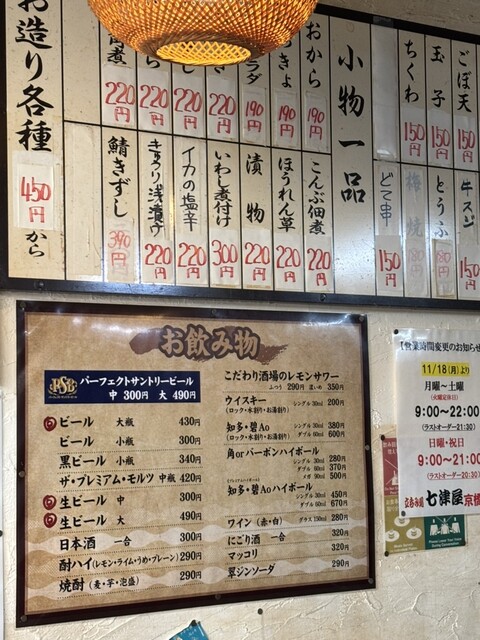 お造り各種 450円 から
煮 220円
220円
220円
220円
ラダ 190円
きょ 190円
おから 190円
小物一品
ちくわ 150円
玉子 150円
ごぼ天 150円
鯖きずし 390円
きゅうり浅漬け 220円
イカの塩辛 220円
いわし煮付け 300円
漬物 220円
ほうれん草 220円
こんぶ佃煮 220円
どて串 150円
梅焼 180円
とうふ 180円
牛スジ 150円
お飲み物
PSB パーフェクトサントリービール
中 300円 大 490円
ビール 大瓶 430円
ビール 小瓶 300円
黒ビール 小瓶 340円
ザ・プレミアム・モルツ 中瓶 420円
生ビール 中 300円
生ビール 大 490円
日本酒 一合 330円
酎ハイ(レモン・ライム・うめ・プレーン) 290円
焼酎(麦・芋・泡盛) 290円
こだわり酒場のレモンサワー
ふつう 290円 濃いめ 350円
ウイスキー シングル 30ml 200円
(ロック・水割り・お湯割り)
知多・碧Ao シングル 30ml 380円
(ロック・水割り・お湯割り) ダブル 60ml 600円
角orバーボンハイボール
シングル 30ml 280円
ダブル 60ml 370円
メガ 90ml 500円
(プレミアムハイボール)
知多・碧Aoハイボール
シングル 30ml 450円
ダブル 60ml 670円
ワイン(赤・白) グラス 150ml 280円
にごり酒 一合 320円
マッコリ 320円
翠ジンソーダ 290円
【営業時間変更のお知らせ
11/18(月)より
月曜~土曜
(火曜定休日)
9:00~22:00
(ラストオーダー21:30)
日曜・祝日
9:00~21:00
(ラストオーダー20:30)
七津屋 京橋